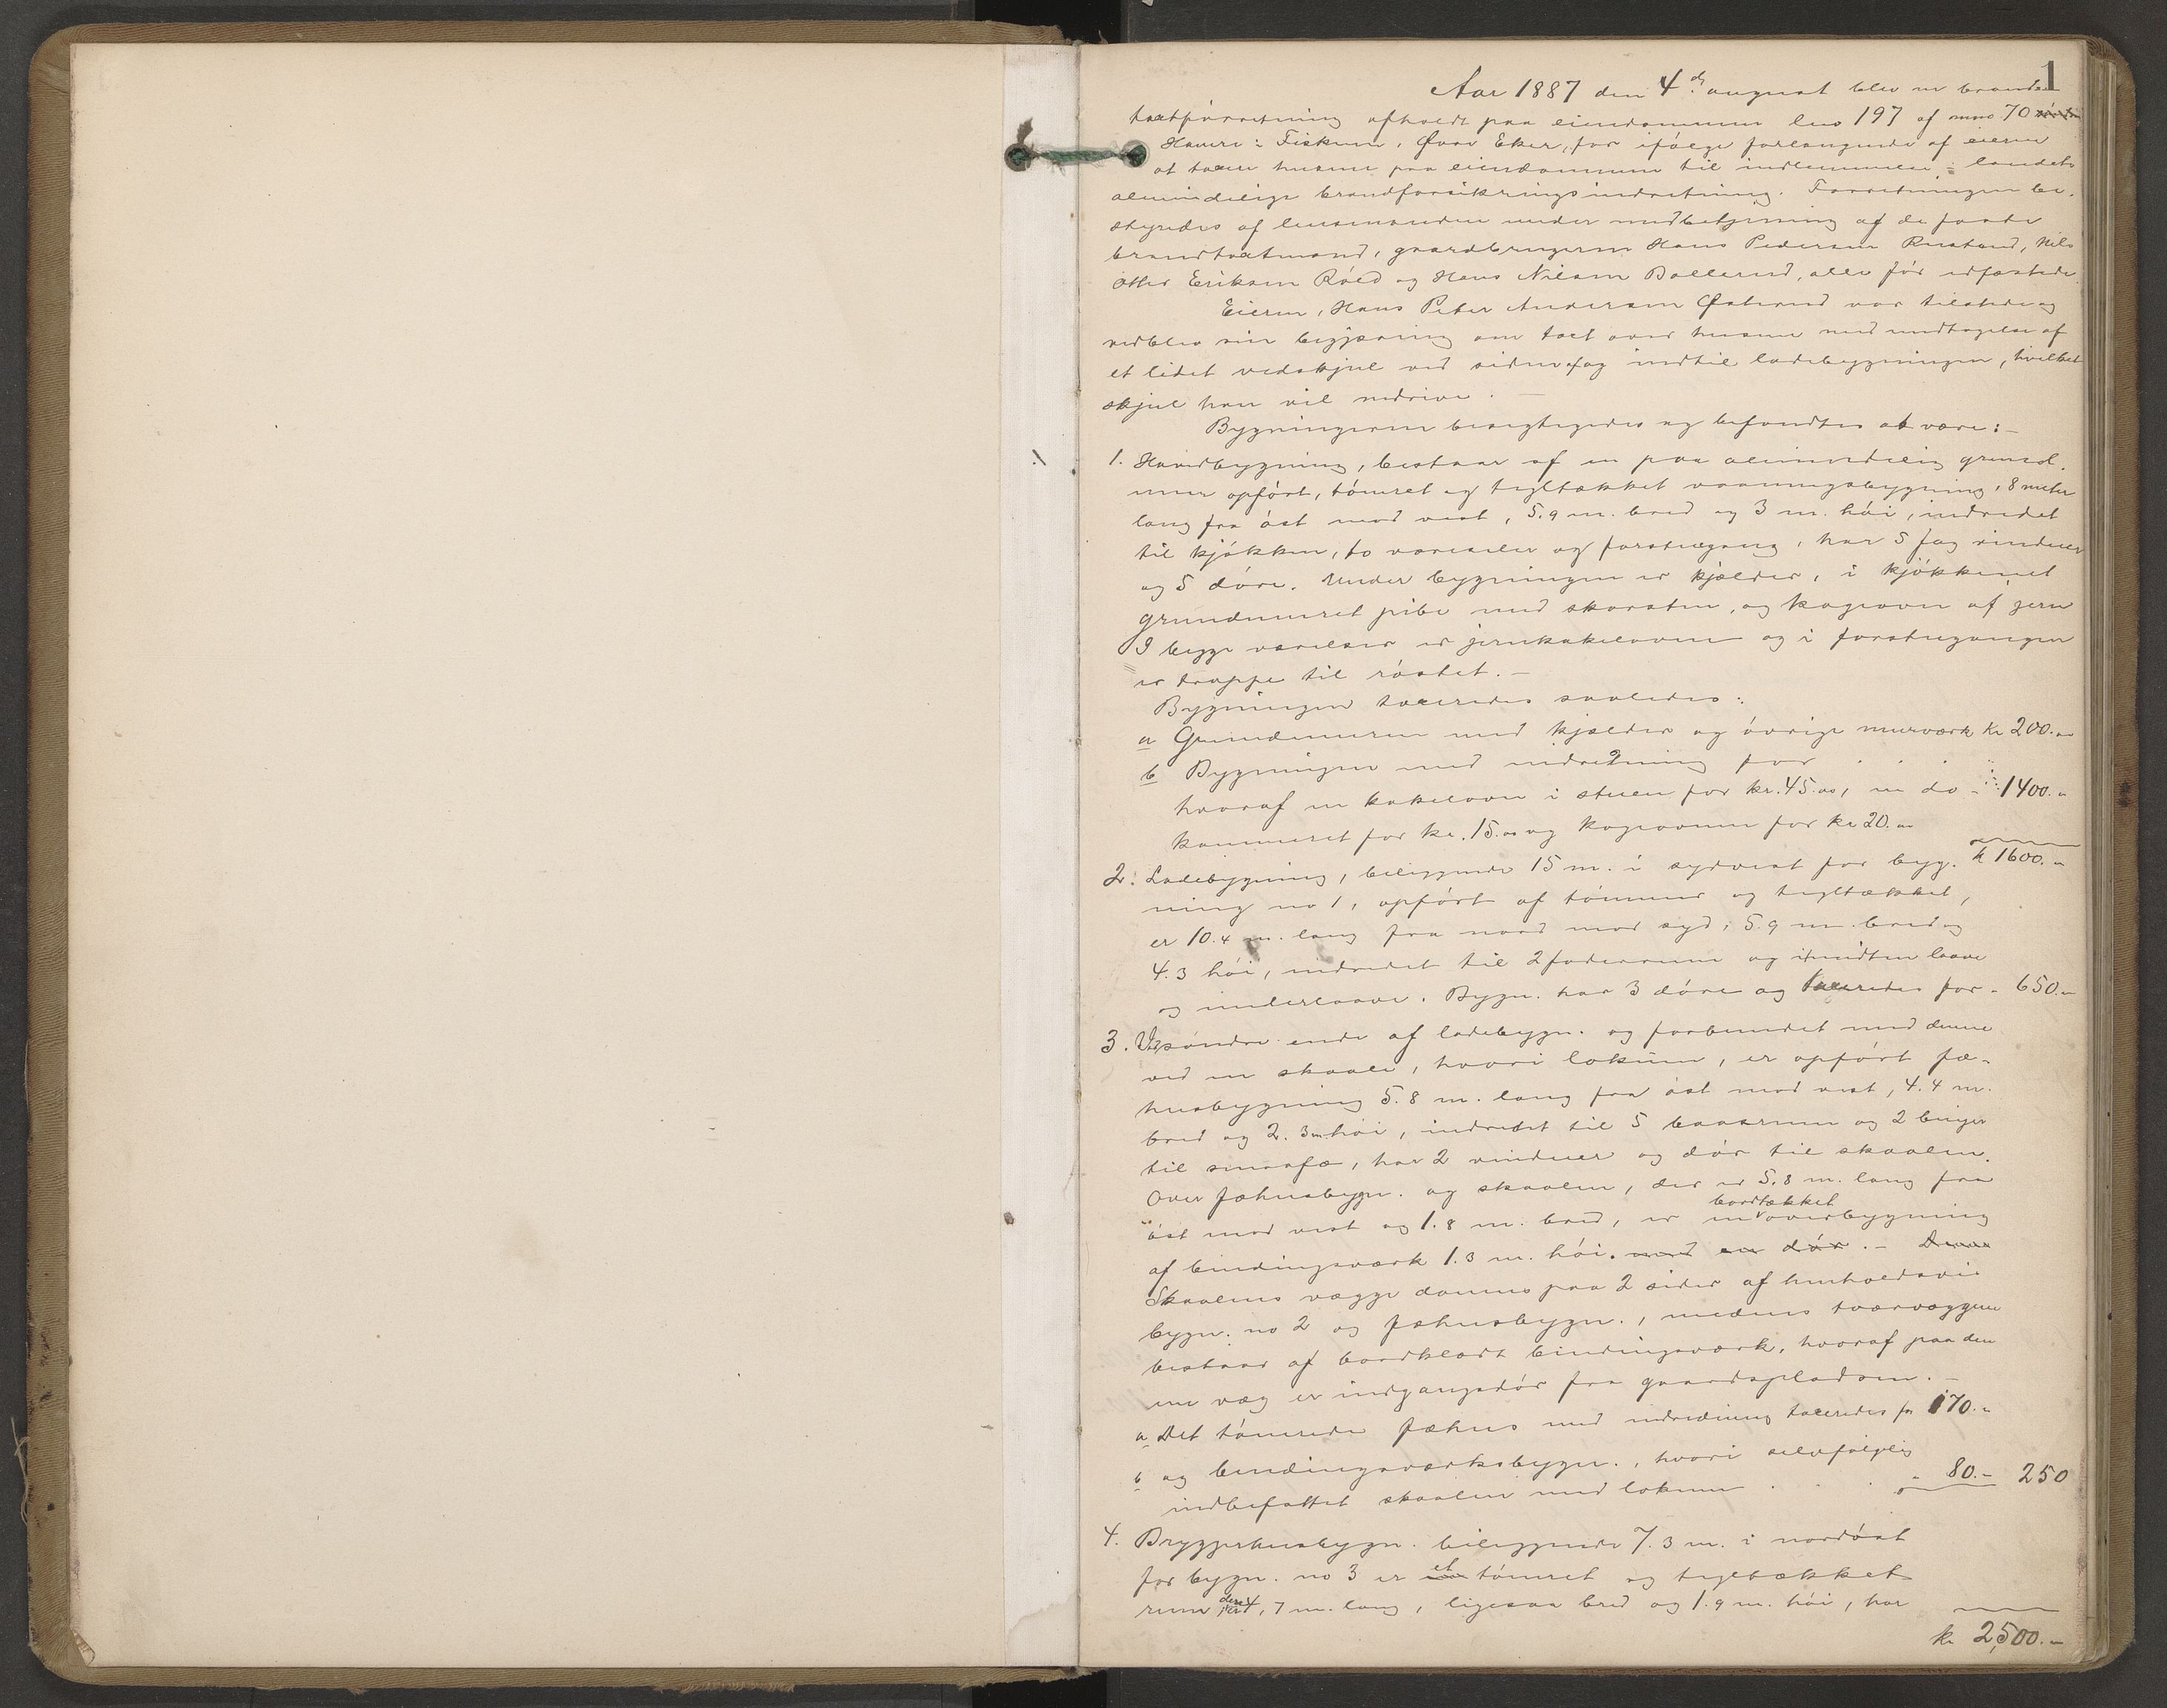 1
Aar 1887 den 4de august blev en brand-
taxtforretning afholdt paa eiendommen lno 197 af mno 70
Haveren i Fiskum, Øvre Eker, for ifølge forlangende af eieren
at taxere husene paa eiendommen til indlemmelse i landets
almindelige brandforsikringsindretning. Forretningen be-
styredes af lensmanden under medbetjening af de faste
brandtaxtmænd, gaardbrugerne Hans Pedersen Rustand, Nils
Otter Eriksen Røed og Hans Nilsen Dallerud, alle før edfæstede.
Eieren, Hans Peter Andersen Østerud var tilstede og
vedblev sin begjæring om taxt over husene med undtagelse af
et lidet vedskjul ved siden af og indtil ladebygningen, hvilket
skjul han vil nedrive. —
Bygningerne besigtigedes og befandtes at være: —
1. Hovedbygning, bestaar af en paa almindelig grund-
mur opført, tømret og tegltækket vaaningsbygning, 8 meter
lang fra øst mod vest, 5.9 m. bred og 3 m. høi, indredet
til kjøkken, to værelser og forstuegang, har 5 fag vinduer
og 5 døre. Under bygningen er kjelder, i kjøkkenet
grundmuret pibe med skorsten, og kogeovn af jern
I begge værelser er jernkakelovne og i forstuegangen
er trappe til røstet. —
Bygningen taxeredes saaledes:
a Grundmuren med kjælder og øvrige murværk kr 200.„
b Bygningen med indredning for . . .
hvoraf en kakelovn i stuen for kr. 45.00, en do - 1400.„
kammeret for kr. 15.00 og kogeovnen for kr 20.„
kr 1600.„
2. Ladebygning, beliggende 15 m. i sydvest for byg-
ning no 1, opført af tømmer og tegltækket,
er 10.4 m. lang fra nord mod syd, 5.9 m. bred og
4.3 høi, indredet til 2 foderrum og i midten laave
og underlaave. Bygn. har 3 døre og taxeredes for - 650.„
3. Ved søndre ende af ladebygn. og forbundet med denne
ved en skaale, hvori lokum, er opført fæ-
husbygning 5.8 m. lang fra øst mod vest, 4.4 m.
bred og 2.3 m høi, indredet til 5 baasrum og 2 binger
til smaafæ, har 2 vinduer og dør til skaalen.
Over fæhusbygn. og skaalen, der er 5.8 m. lang fra
øst mod vest og 1.8 m. bred, er en bordtækket overbygning
af bindingsværk 1.3 m. høi. med en dør. — Denne
Skaalens vægge dannes paa 2 sider af henholdsvis
bygn. no 2 og fæhusbygn., medens tværvæggene
bestaar af bordklædt bindingsværk, hvoraf paa den
ene væg er indgangsdør fra gaardspladsen. —
a Det tømrede fæhus med indredning taxeredes for 170.„
b og bindingsværksbygn., hvori selvfølgelig
indbefattet skaalen med lokum . . . - 80.- 250
4. Bryggerhusbygn. beliggende 7.3 m. i nordøst
for bygn. no 3 er et tømret og tegltækket
rum, 7 m. lang, ligesaa bred og 1.9 m. høi, har
kr 2,500.„